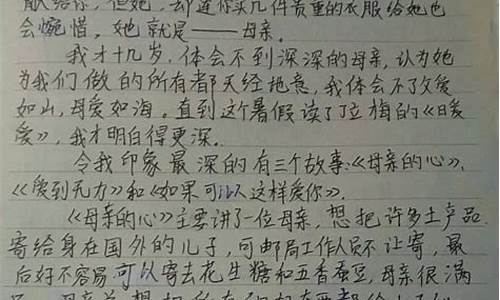 献给你，但她，却道你买几件贵重的衣服给她也
会惋惜，她就是——母亲。
我才十几岁，体会不到深深的母亲，认为她
为我们做的所有都天经地意，我体会不了父爱
如山，母爱如海。直到这个暑假读了丁立梅的《日暖
爱》，我才明白得更深。
令我印象最深的有三个故事：《母亲的心》、
《爱到无力》和《如果可以这样爱你》.
《母亲的心》主要讲了一位母亲，想把许多土产品
寄给身在国外的儿子，可邮局工作人员不让寄，最
后好不容易可以寄去花生糖和五香蚕豆，母亲很满